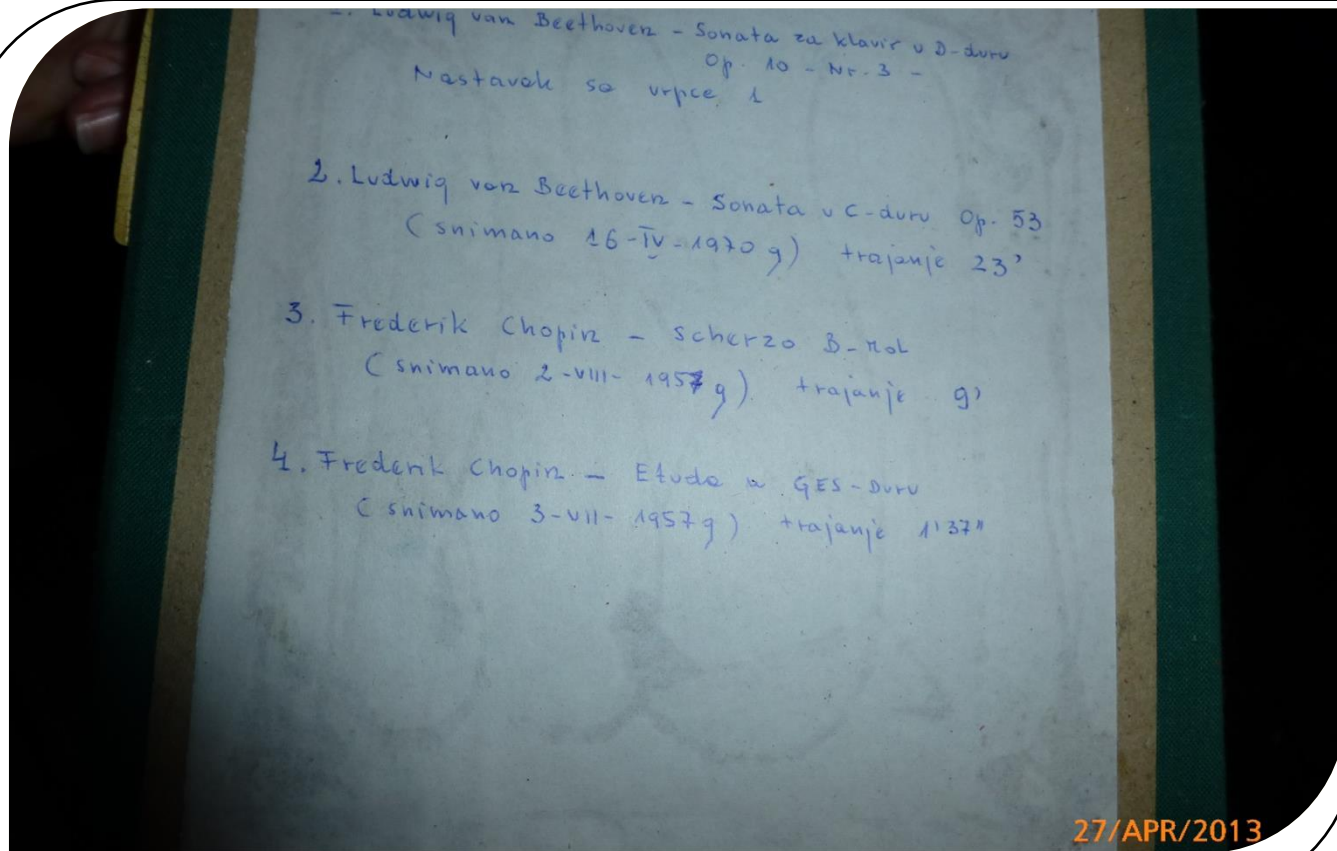 1. Ludwig van Beethoven - Sonata za klavir u D-duru
Op. 10 - Nr. 3 -
Nastavak sa vrpce 1
2. Ludwig van Beethoven - Sonata u C-duru Op. 53
(snimano 16-IV-1970 g) trajanje 23'
3. Frederik Chopin - Scherzo B-mol
(snimano 2-VIII-1957 g) trajanje 9'
4. Frederik Chopin - Etuda u GES-Duru
(snimano 3-VII-1957 g) trajanje 1'37"
27/APR/2013